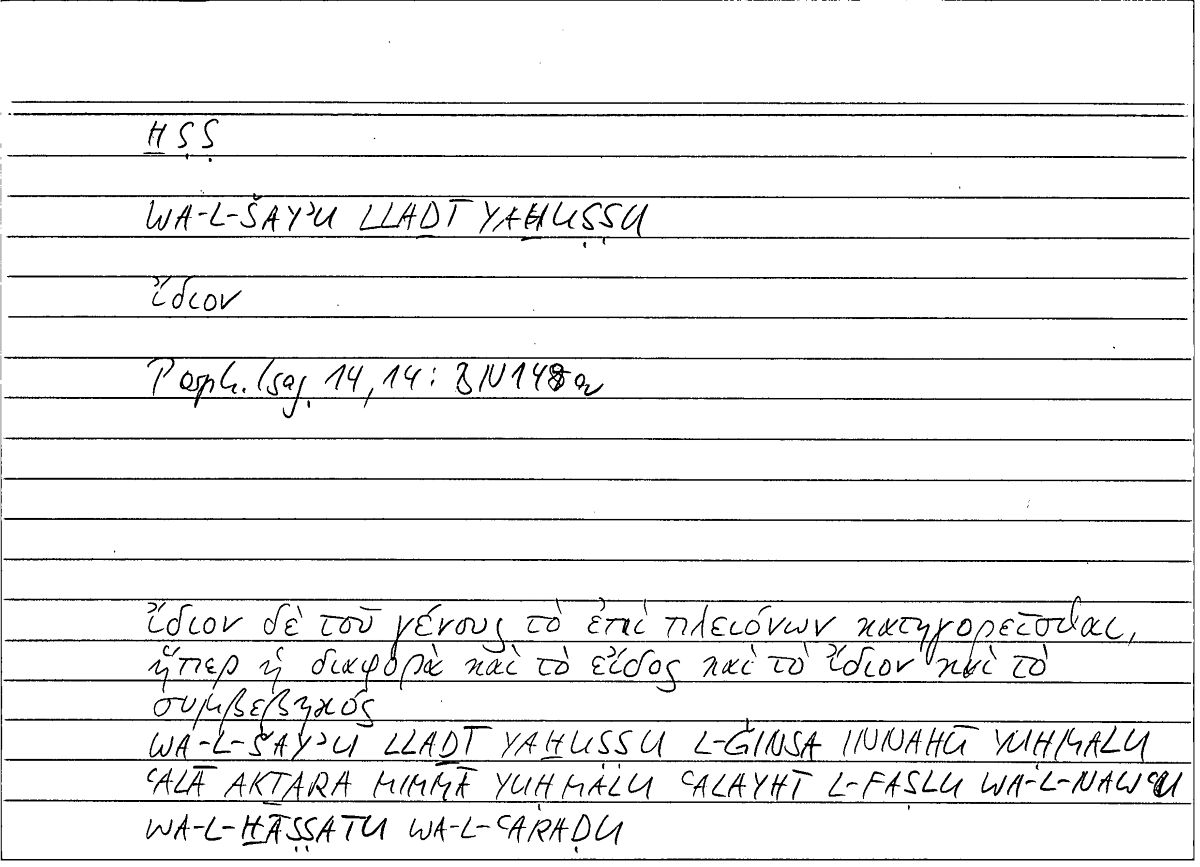 ḪṢṢ
WA-L-ŠAYʾU LLAḎĪ YAḪUṢṢU
ἴδιον
Porph. Isag. 14,14: BN148a
ἴδιον δὲ τοῦ γένους τὸ ἐπὶ πλειόνων κατηγορεῖσθαι,
ἤπερ ἡ διαφορὰ καὶ τὸ εἶδος καὶ τὸ ἴδιον καὶ τὸ
συμβεβηκός
WA-L-ŠAYʾU LLAḎĪ YAḪUṢṢU L-ǦINSA INNAHŪ YUḤMALU
ʿALĀ AKṮARA MIMMĀ YUḤMALU ʿALAYHĪ L-FAṢLU WA-L-NAWʿU
WA-L-ḪĀṢṢATU WA-L-ʿARAḌU